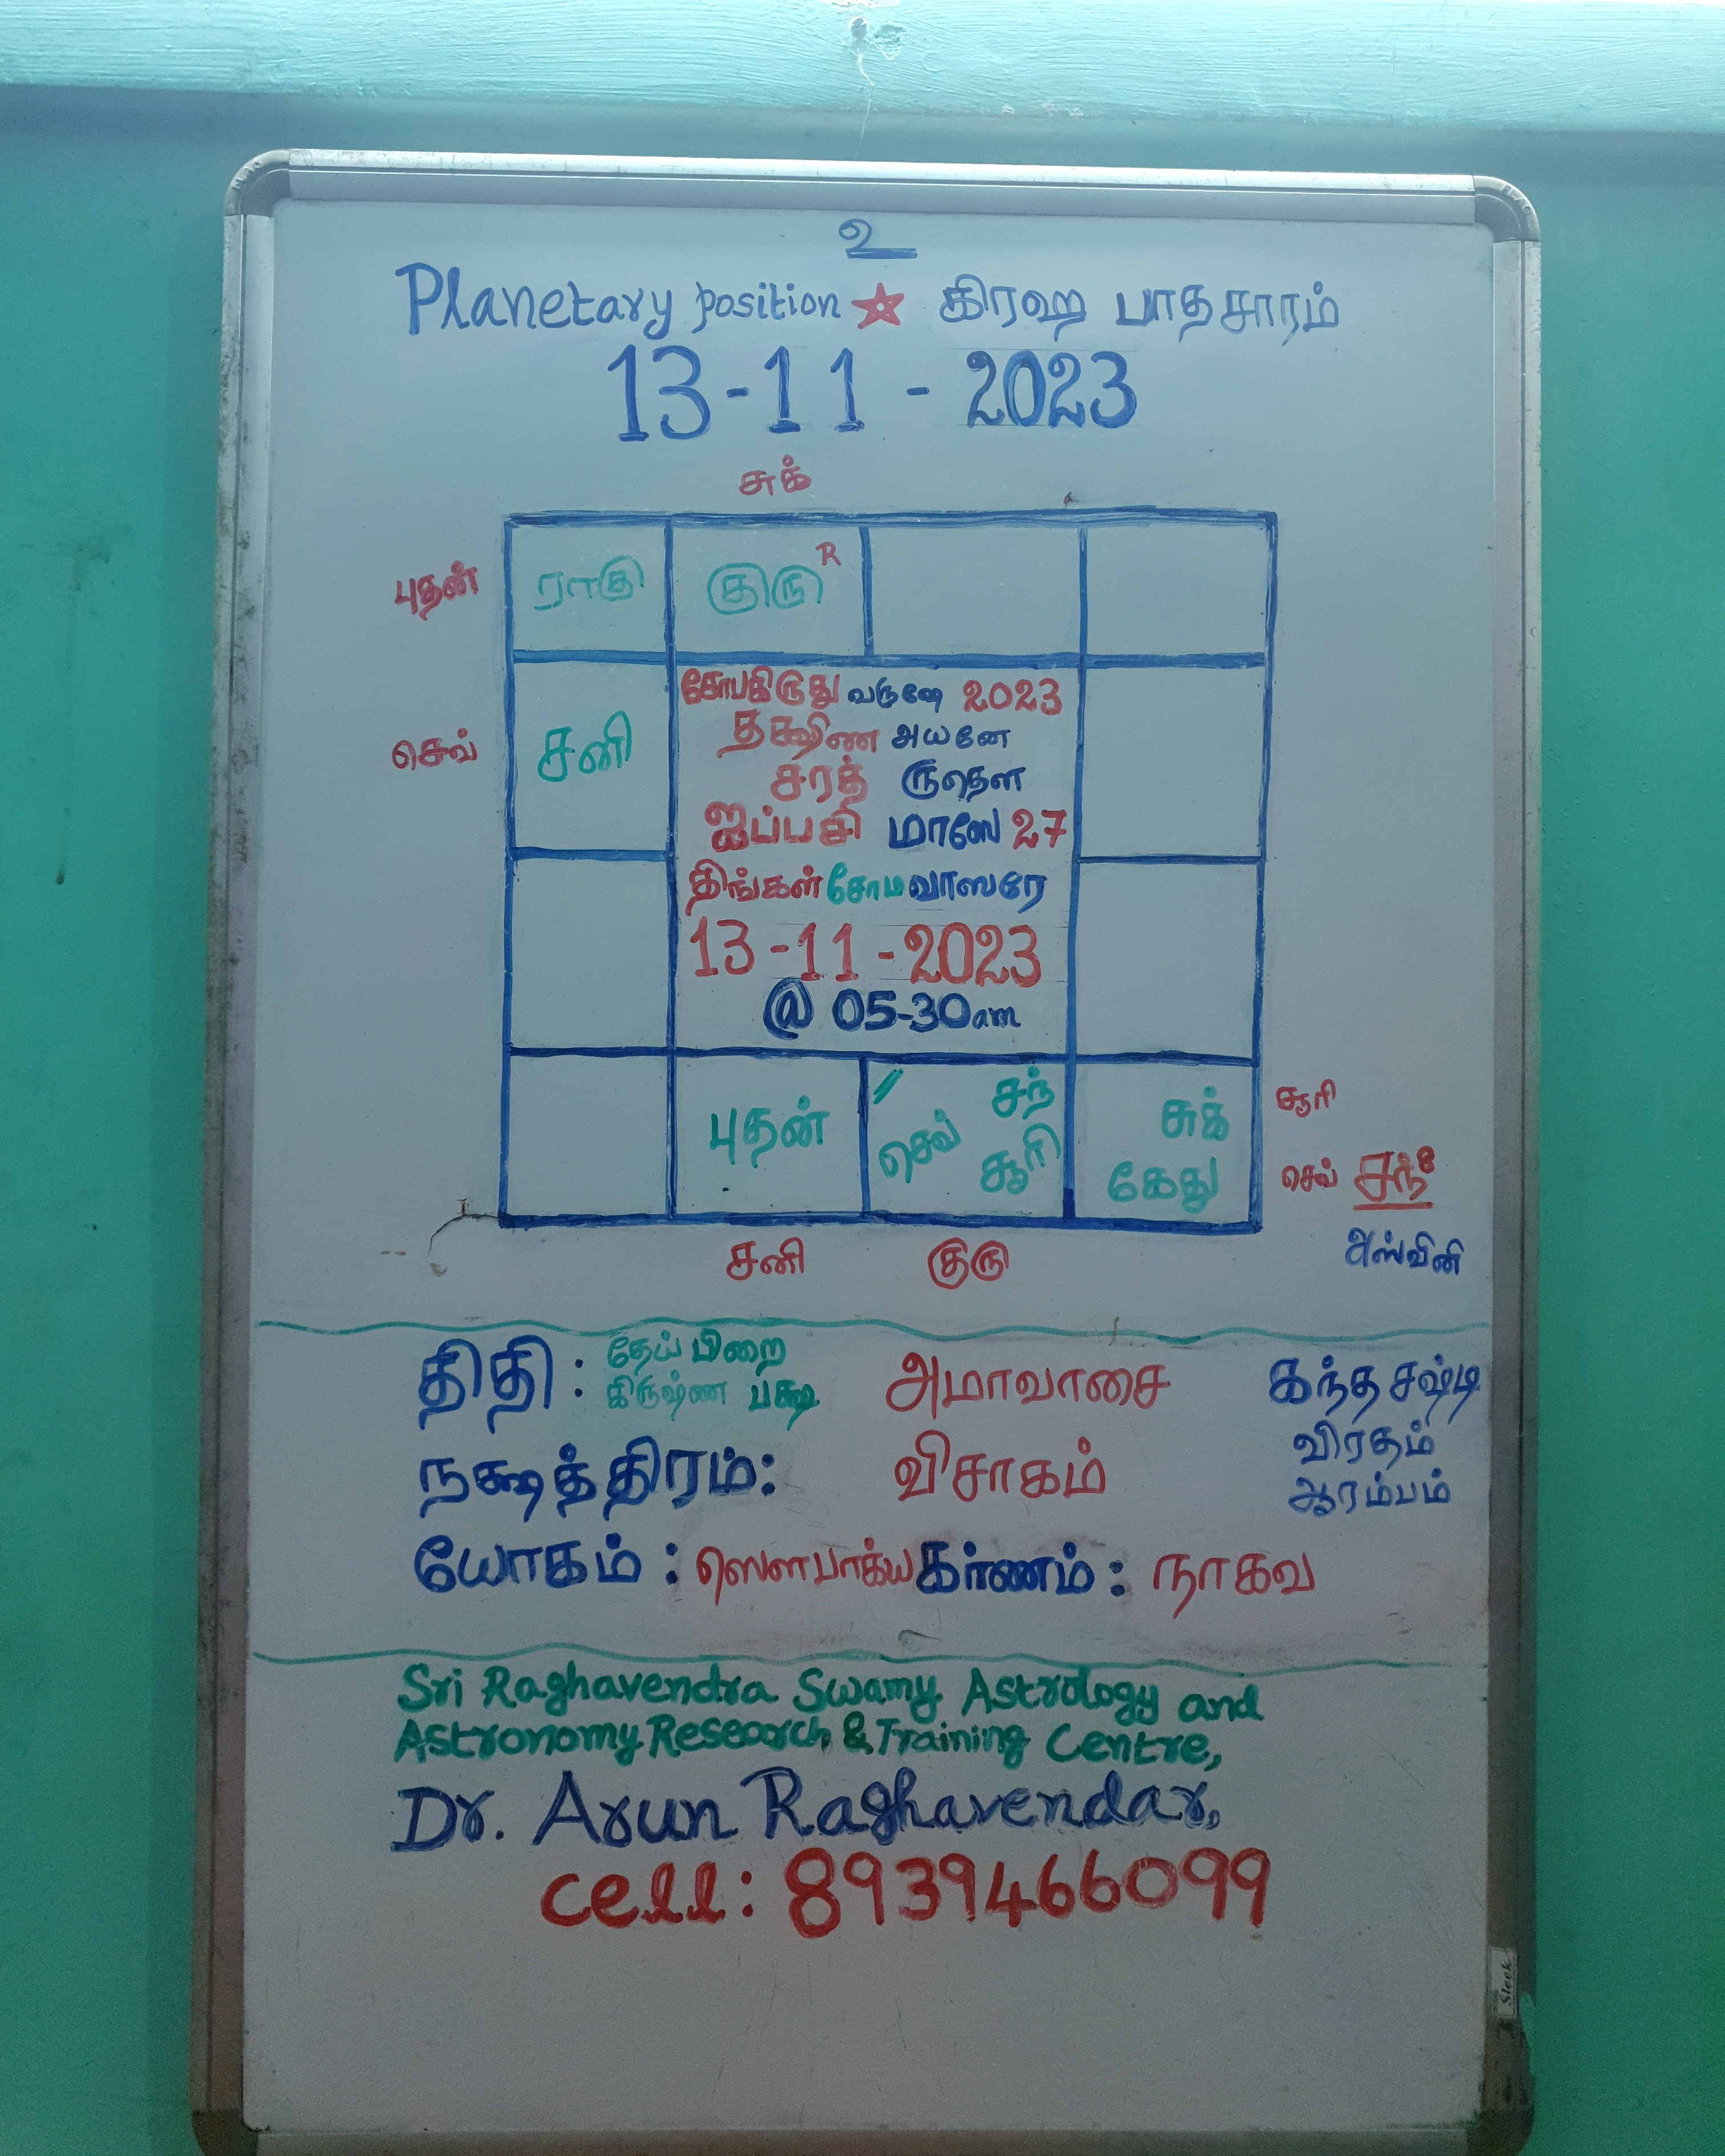 உ
Planetary position ☆ கிரஹ பாதசாரம்
13-11-2023
சுக்
புதன் ராகு குரு R
சோபகிருது வருஷே 2023
தக்ஷிண அயனே
செவ் சனி
சரத் ருதௌ
ஐப்பசி மாஸே 27
திங்கள் சோம வாஸரே
13-11-2023
@ 05-30am
புதன் செவ் சந் சூரி சுக் கேது
சூரி
செவ் சந்
சனி குரு
அஸ்வினி
திதி: தேய்பிறை கிருஷ்ண பக்ஷ அமாவாசை
கந்த சஷ்டி
விரதம்
ஆரம்பம்
நக்ஷத்திரம்: விசாகம்
யோகம்: ஸௌபாக்ய கர்ணம்: நாகவ
Sri Raghavendra Swamy Astrology and
Astronomy Research & Training Centre,
Dr. Arun Raghavendar,
cell: 8939466099
Sleek